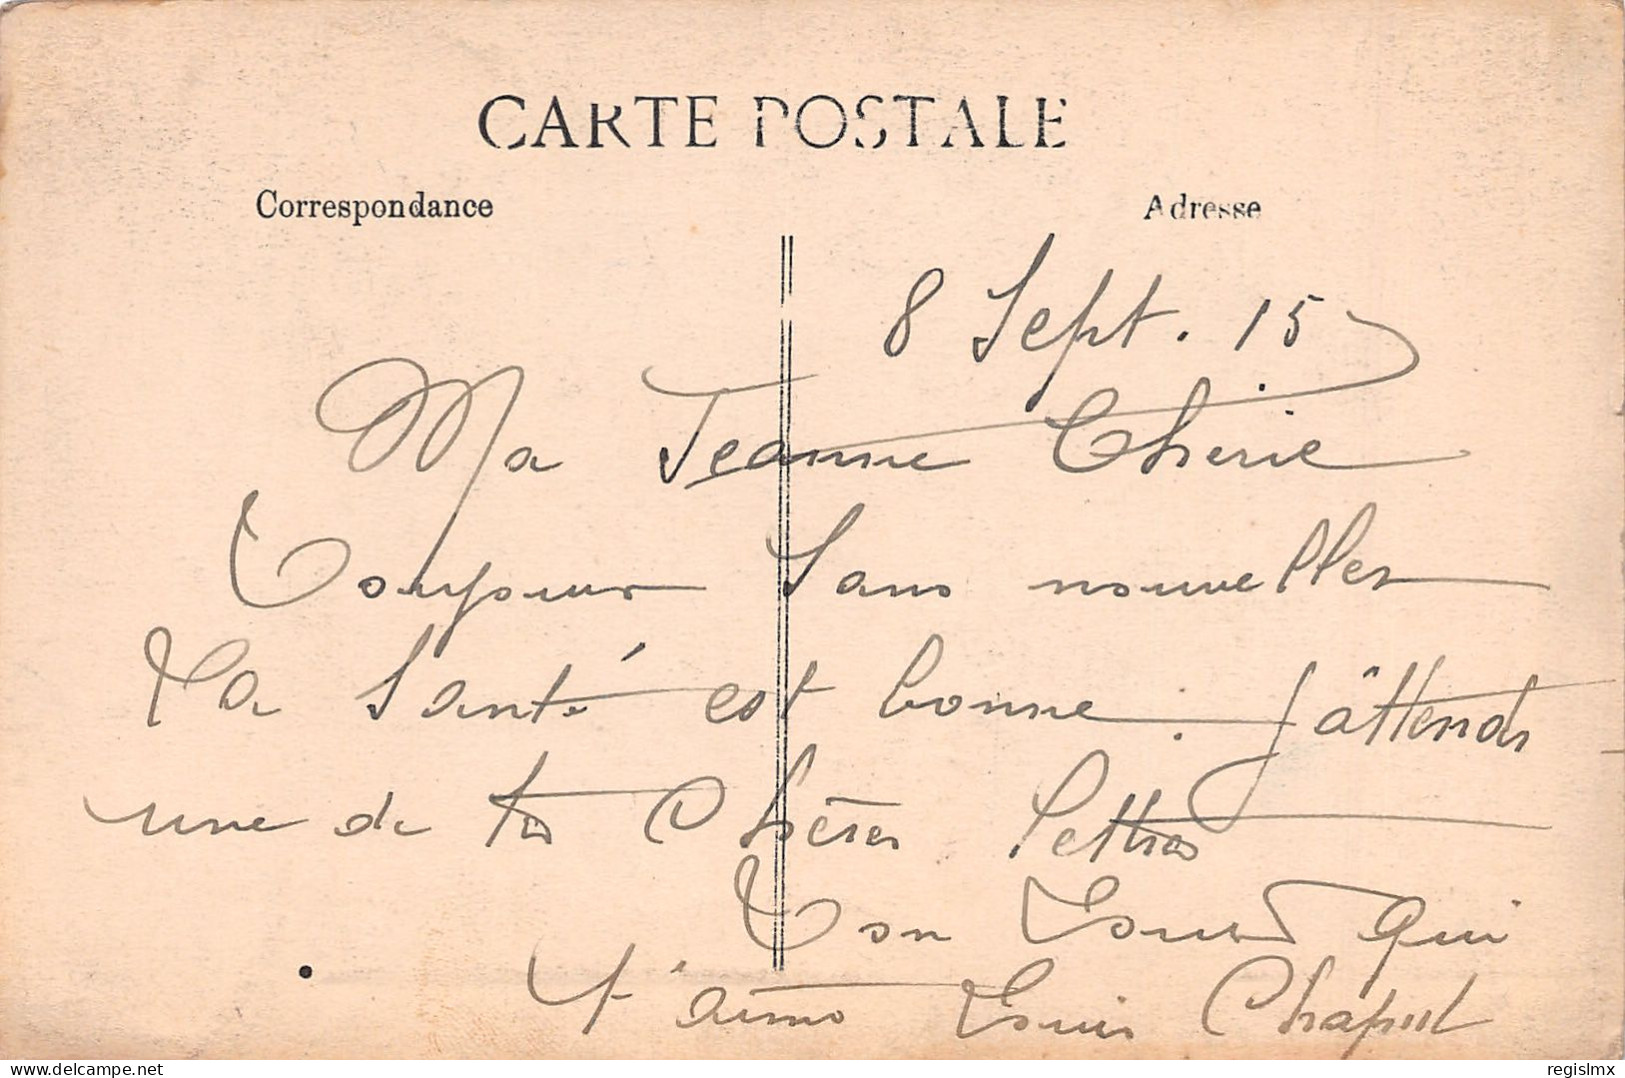 CARTE POSTALE
Correspondance Adresse
8 Sept. 15
Ma Jeanne Cherie
Toujours Sans nouvelles
Ma Santé est bonne. J'attends
une de tes Chères lettres
Ton Louis qui
t'aime Louis Chaput
delcampe.net
regislmx